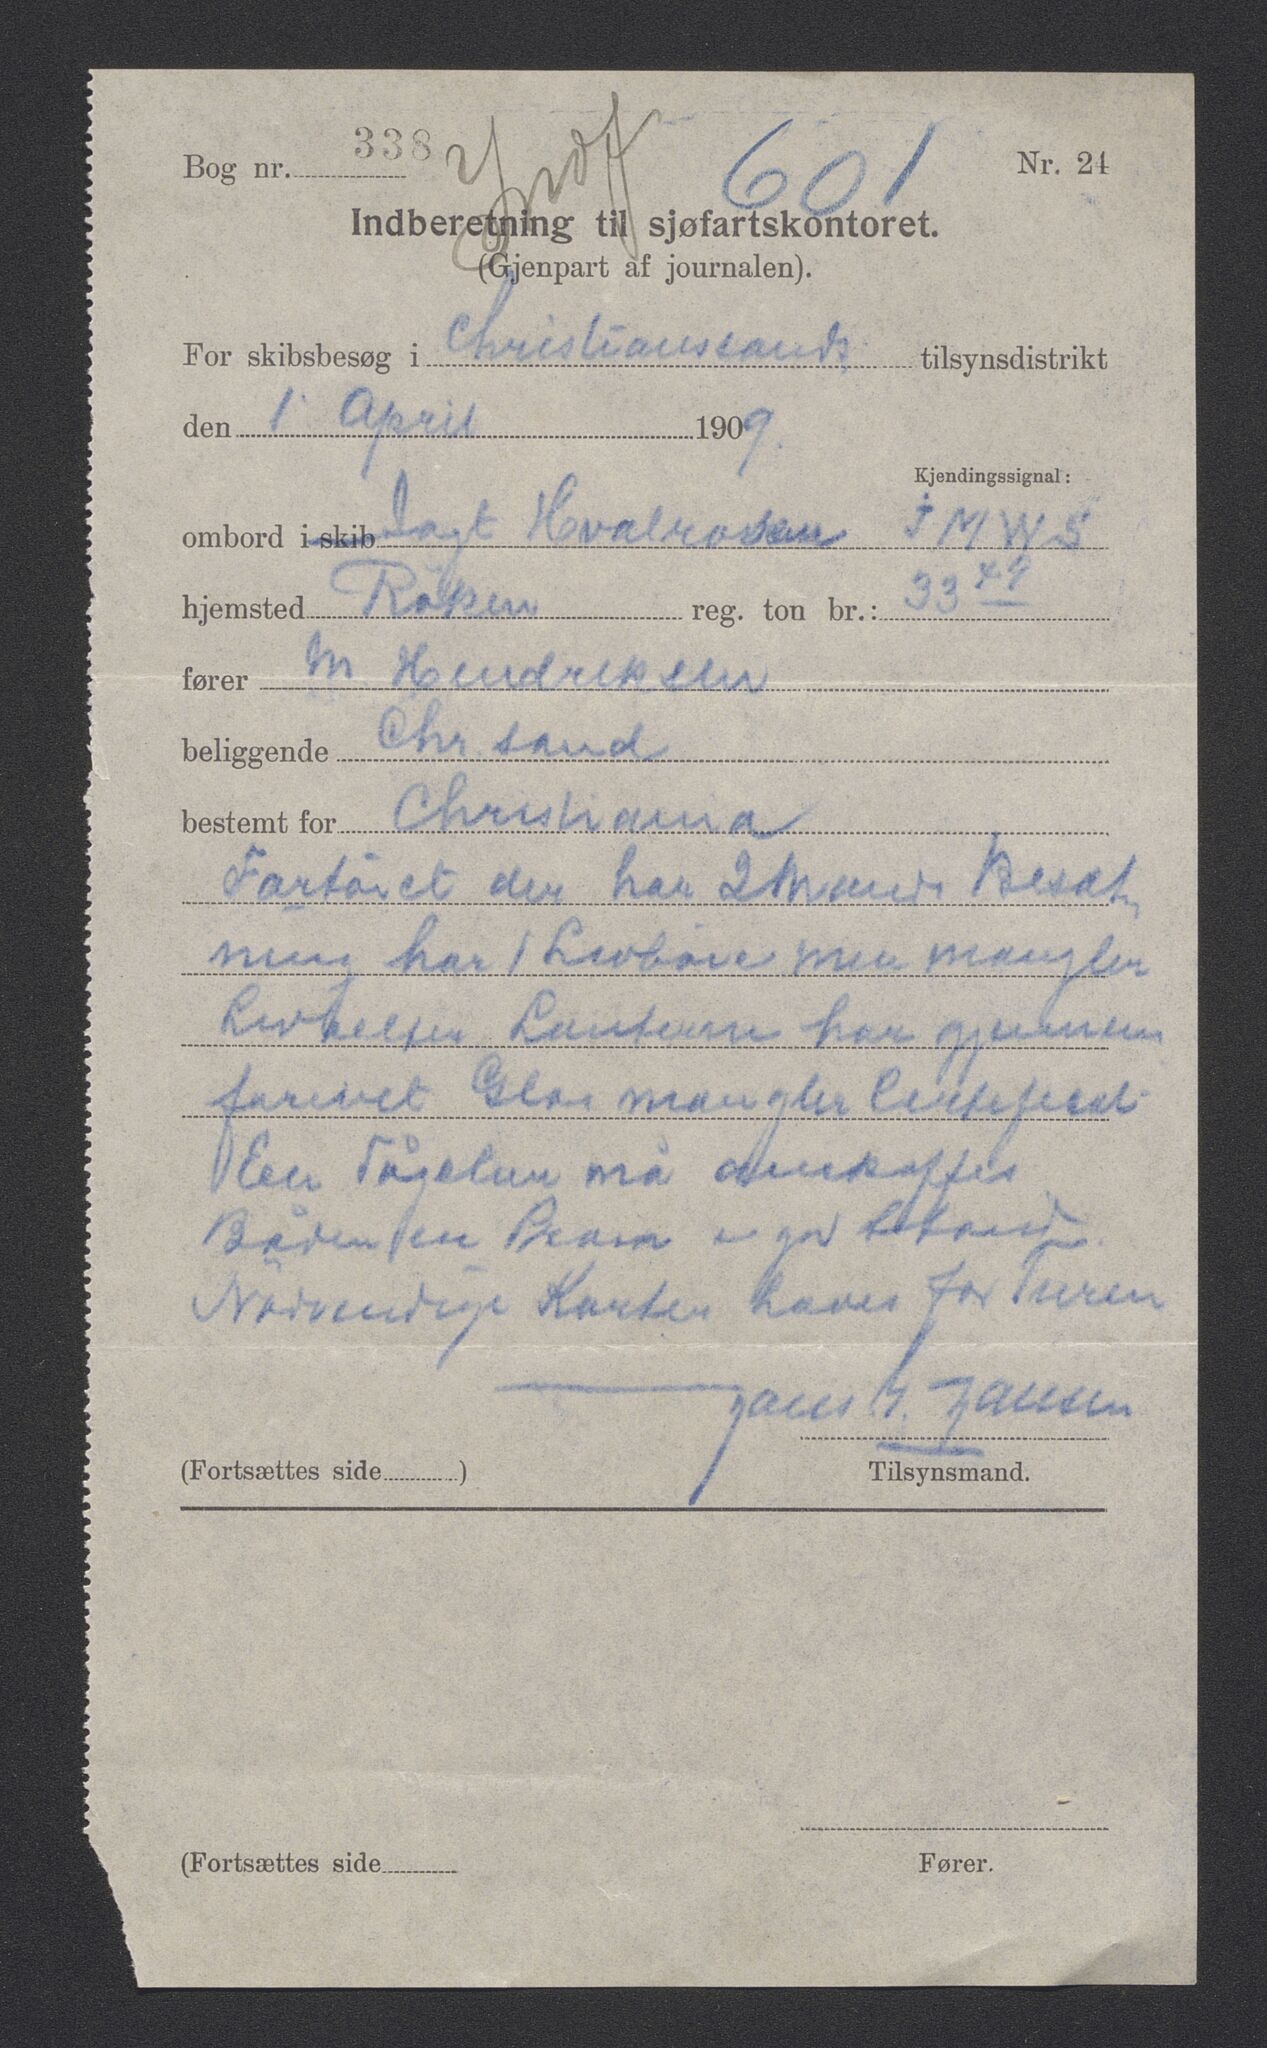 Bog nr. 338 601 Nr. 24
Indberetning til sjøfartskontoret.
(Gjenpart af journalen).
For skibsbesøg i Christianssands tilsynsdistrikt
den 1 April 1909.
Kjendingssignal:
ombord i skib Jagt Hvalrossen J M W S
hjemsted Röken reg. ton br.: 33 49
fører M. Hendriksen
beliggende Chr.sand
bestemt for Christiania
Fartöiet der har 2 Mands Besæt
ning har 1 Livböie men mangler
Livbelter Lanterne har gjennem
farivet Glas mangler Certificat
Een Tågelur må anskaffes
Båden en Pram i god Stand.
Nödvendige Karter haves for Turen
Jans J. Jansen
(Fortsættes side ) Tilsynsmand.
(Fortsættes side Fører.